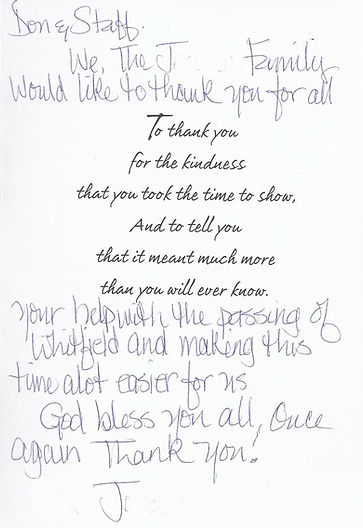 Don & Staff.
We, The J Family
Would like to thank you for all
To thank you
for the kindness
that you took the time to show,
And to tell you
that it meant much more
than you will ever know.
your help with the passing of
Whitfield and making this
time alot easier for us
God bless you all, Once
again Thank You!
J